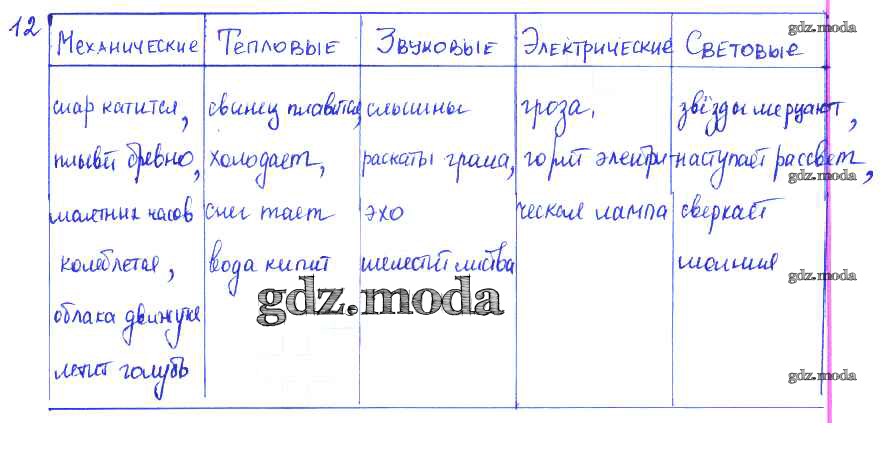 12
Механические Тепловые Звуковые Электрические Световые
gdz.moda
шар катится, свинец плавится, слышны гроза, звёзды мерцают,
плывёт бревно, холодает, раскаты грома, горит электри- наступает рассвет,
gdz.moda
маятник часов снег тает эхо ческая лампа сверкает
gdz.moda
колеблется, вода кипит шелестит листва молния
gdz.moda
gdz.moda
облака движутся
летит голубь
gdz.moda